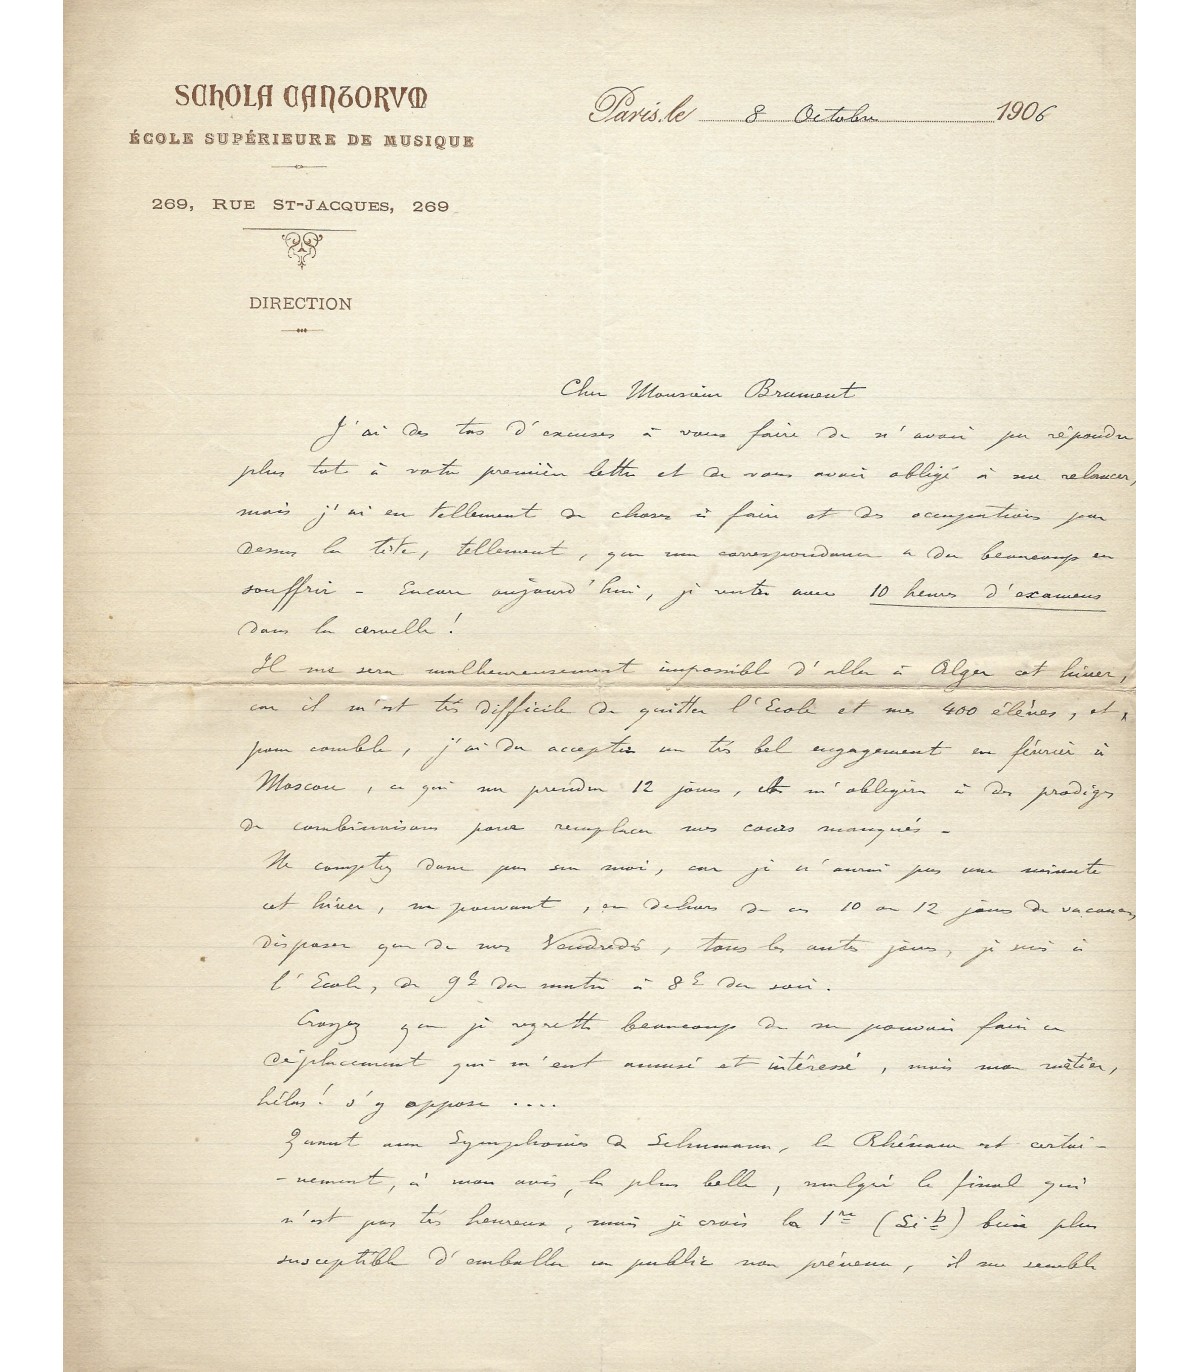 SCHOLA CANTORVM
ÉCOLE SUPÉRIEURE DE MUSIQUE
269, RUE ST-JACQUES, 269
DIRECTION
Paris, le 8 Octobre 1906
Cher Monsieur Brument
J'ai des tas d'excuses à vous faire de n'avoir pu répondre
plus tôt à votre première lettre et de vous avoir obligé à me relancer,
mais j'ai eu tellement de choses à faire et des occupations par
dessus la tête, tellement, que ma correspondance a du beaucoup en
souffrir – Encore aujourd'hui, je rentre avec 10 heures d'examens
dans la cervelle !
Il me sera malheureusement impossible d'aller à Alger cet hiver,
car il m'est très difficile de quitter l'Ecole et mes 400 élèves, et,
pour comble, j'ai du accepter un très bel engagement en février à
Moscou, ce qui me prendra 12 jours, et m'obligera à des prodiges
de combinaisons pour remplacer mes cours manqués –
Ne comptez donc pas sur moi, car je n'aurai pas une minute
cet hiver, ne pouvant, en dehors de ces 10 ou 12 jours de vacances
disposer que de mes Vendredis, tous les autres jours, je suis à
l'Ecole, de 9h du matin à 8h du soir.
Croyez que je regrette beaucoup de ne pouvoir faire ce
déplacement qui m'eut amusé et intéressé, mais mon métier,
hélas ! s'y oppose ....
Quant aux Symphonies de Schumann, la Rhénane est certai-
-nement, à mon avis, la plus belle, malgré le final qui
n'est pas très heureux, mais je crois la 1re (Si b) bien plus
susceptible d'emballer un public non prévenu, il me semble